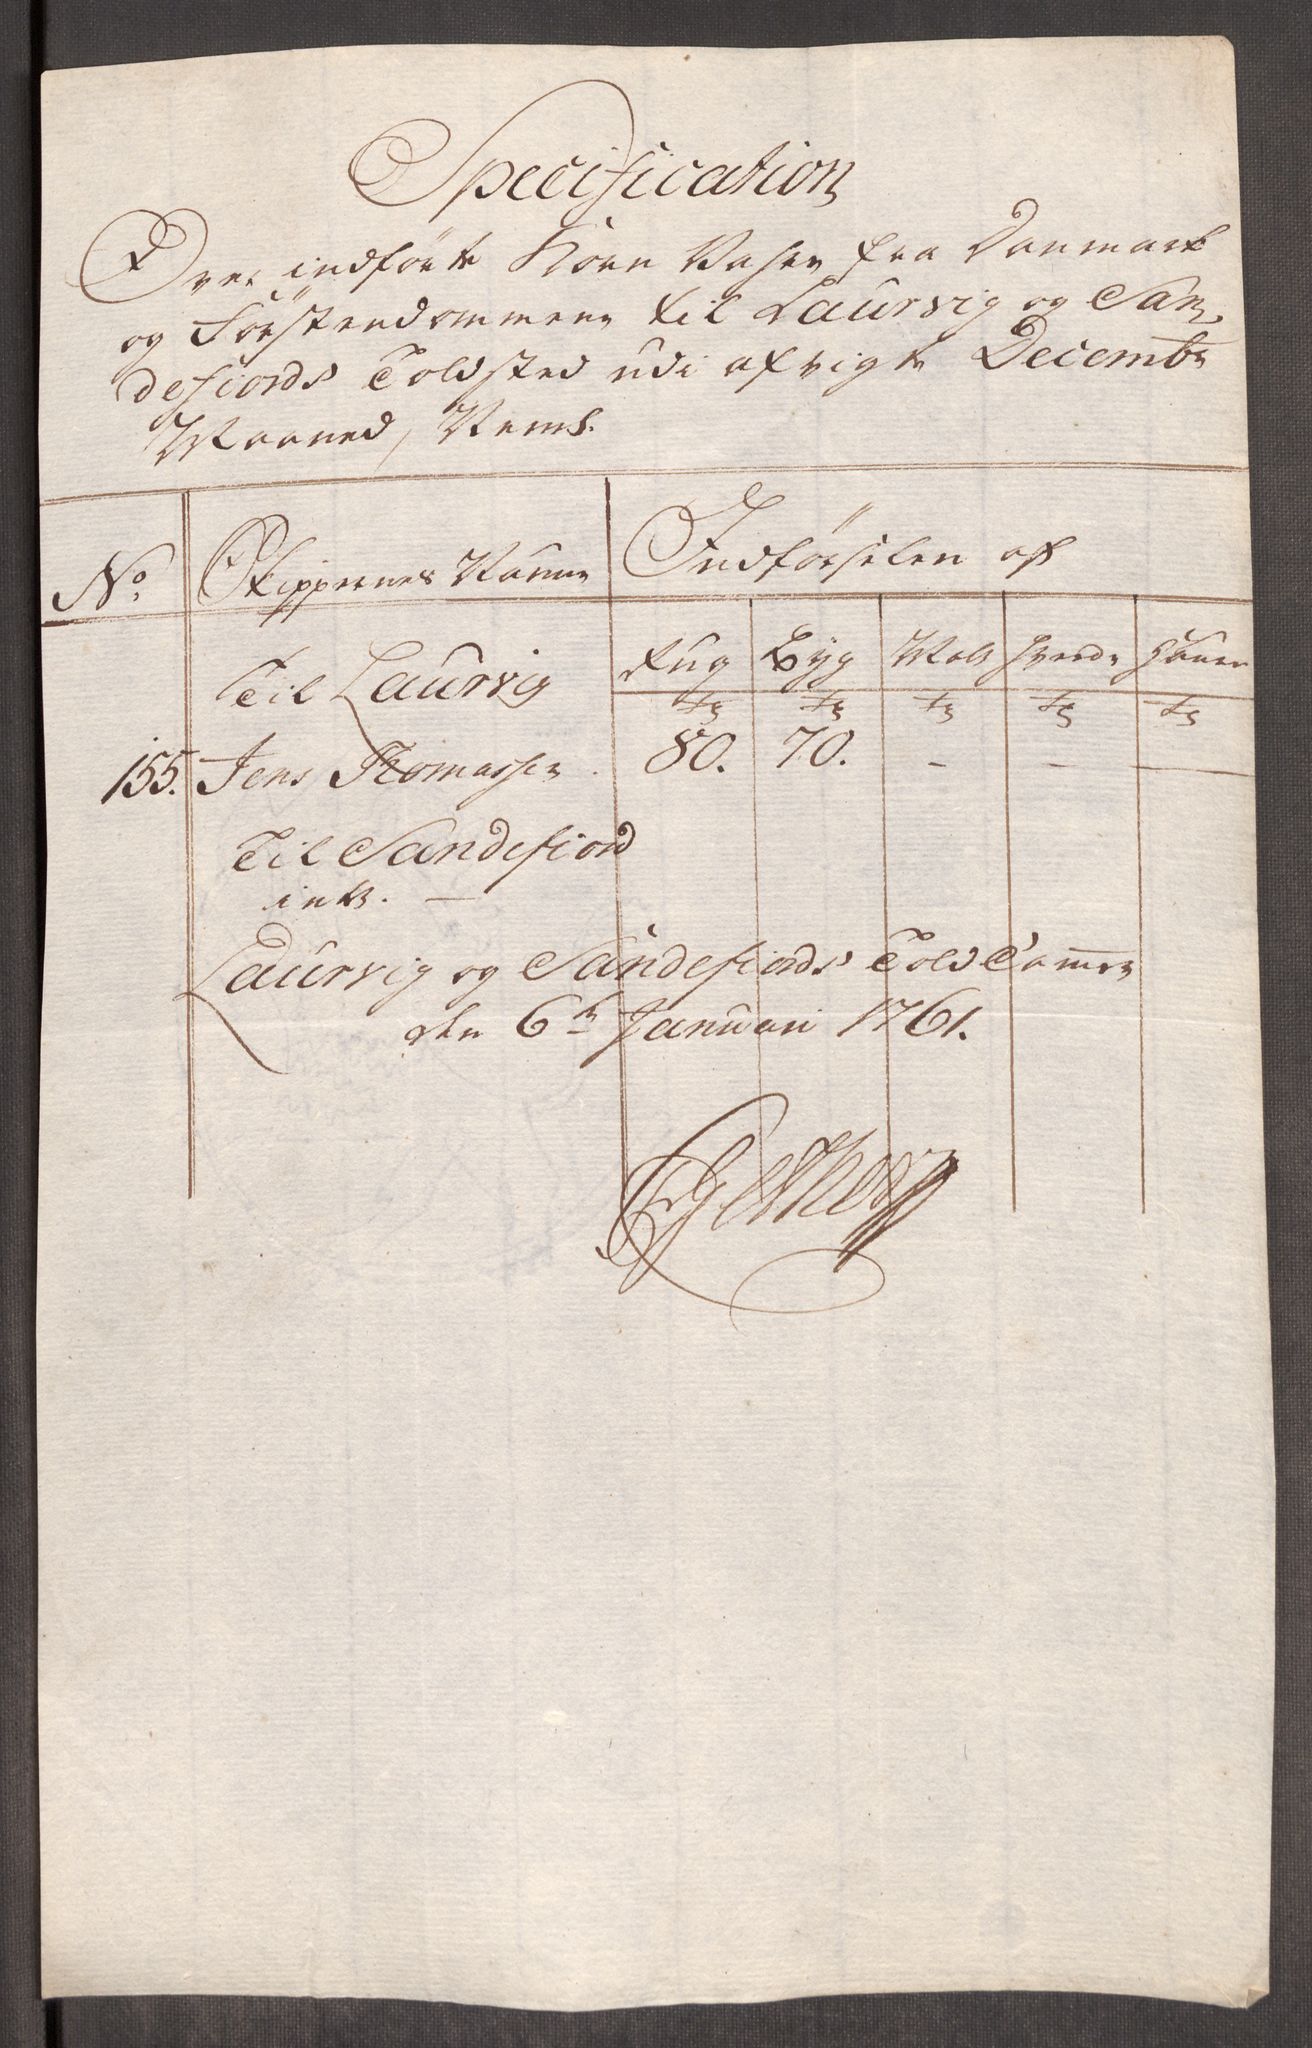 Specification
Over indførte Korn Vahre fra Danmark
og Førstendommene til Laurvig og San,
defiords Told sted udi afvigte Decembr
Maaned, Neml.
No. Skippernes Nafne Indførselen af
Til Laurvig Rug Byg Malt Hvede Hauer
Tr Tr Tr Tr Tr
155. Jens Thomassen. 80. 70. - - -
Til Sandefiord
intz. —
Laurvig og Sandefiords Told Camer
den 6te Januari 1761.